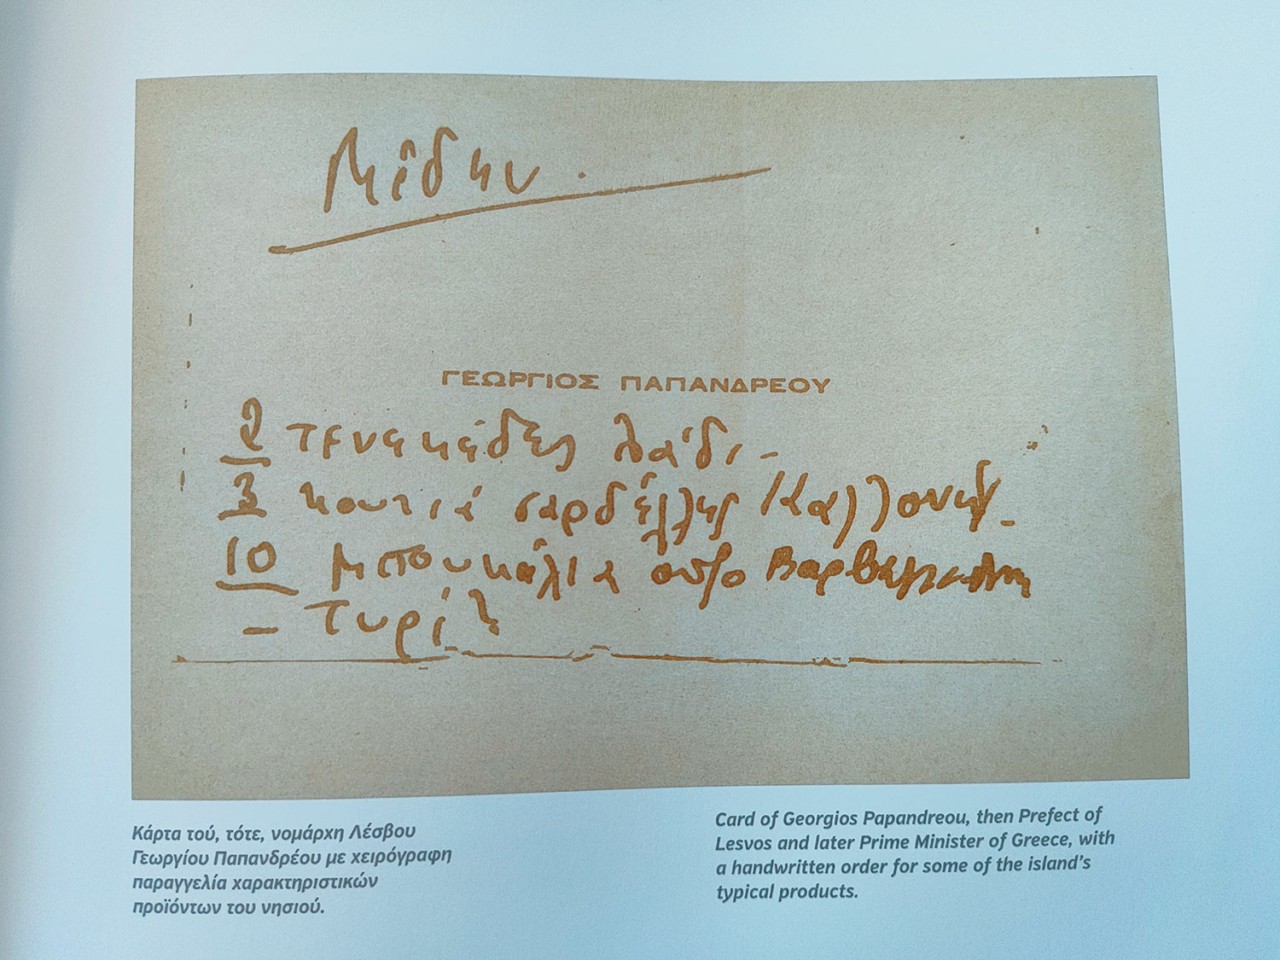 Μέδην.
ΓΕΩΡΓΙΟΣ ΠΑΠΑΝΔΡΕΟΥ
2 τενεκέδες λάδι -
3 κουτιά σαρδέλλες Καλλονής -
10 μπουκάλια ούζο
- Τυρί
Κάρτα τού, τότε, νομάρχη Λέσβου
Γεωργίου Παπανδρέου με χειρόγραφη
παραγγελία χαρακτηριστικών
προϊόντων του νησιού.
Card of Georgios Papandreou, then Prefect of
Lesvos and later Prime Minister of Greece, with
a handwritten order for some of the island's
typical products.